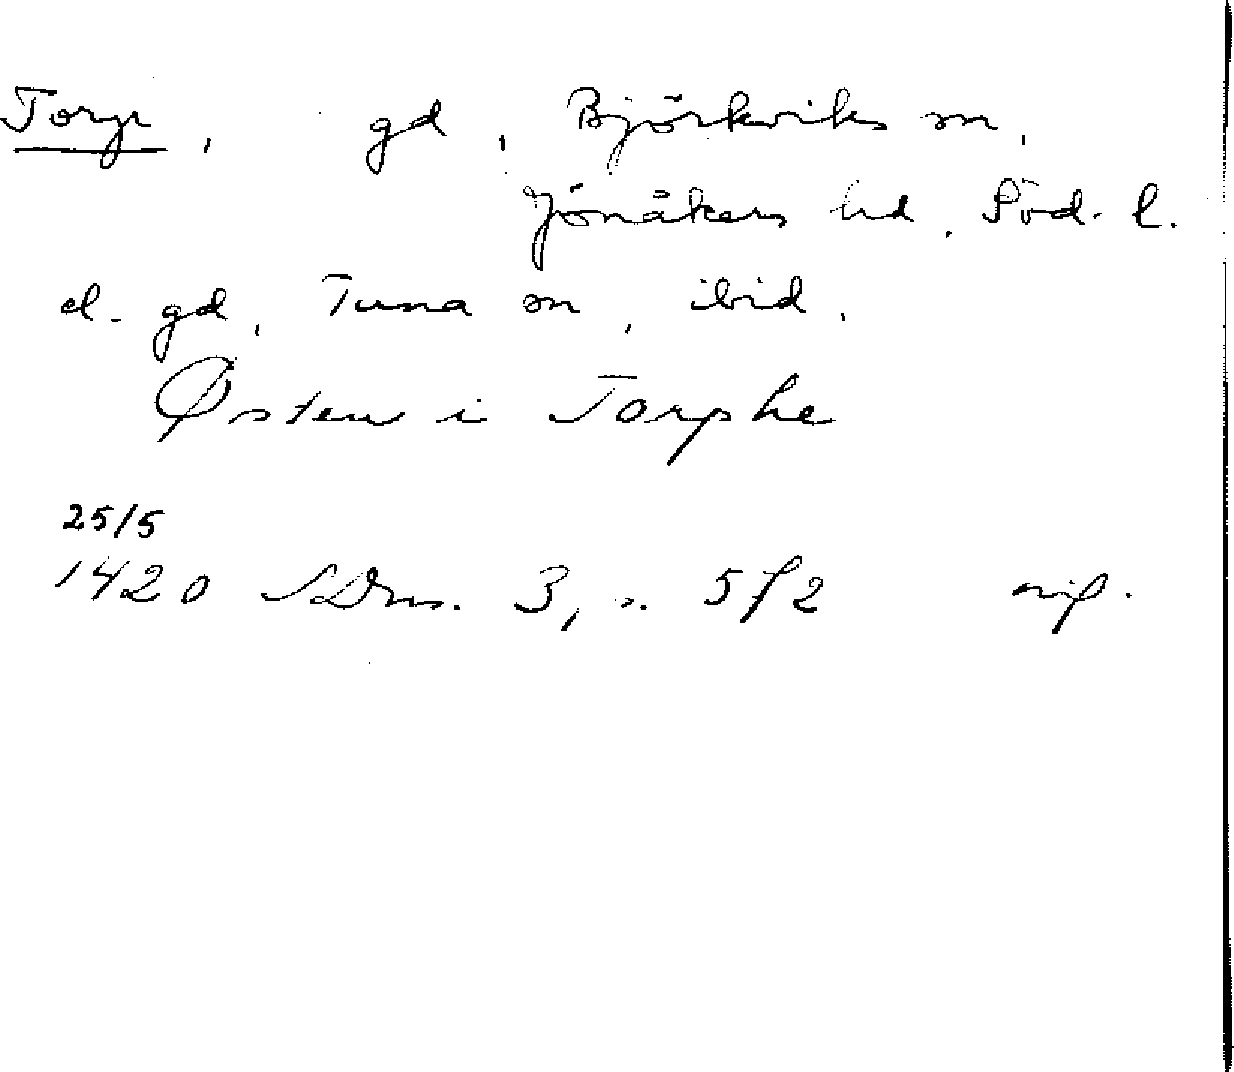 Torp, gd, Björkviks sn,
Jönåkers hd, Söd. l.
el. gd, Tuna sn, ibid.
Østen i Torphe
25/5
1420 SDns. 3, s. 572